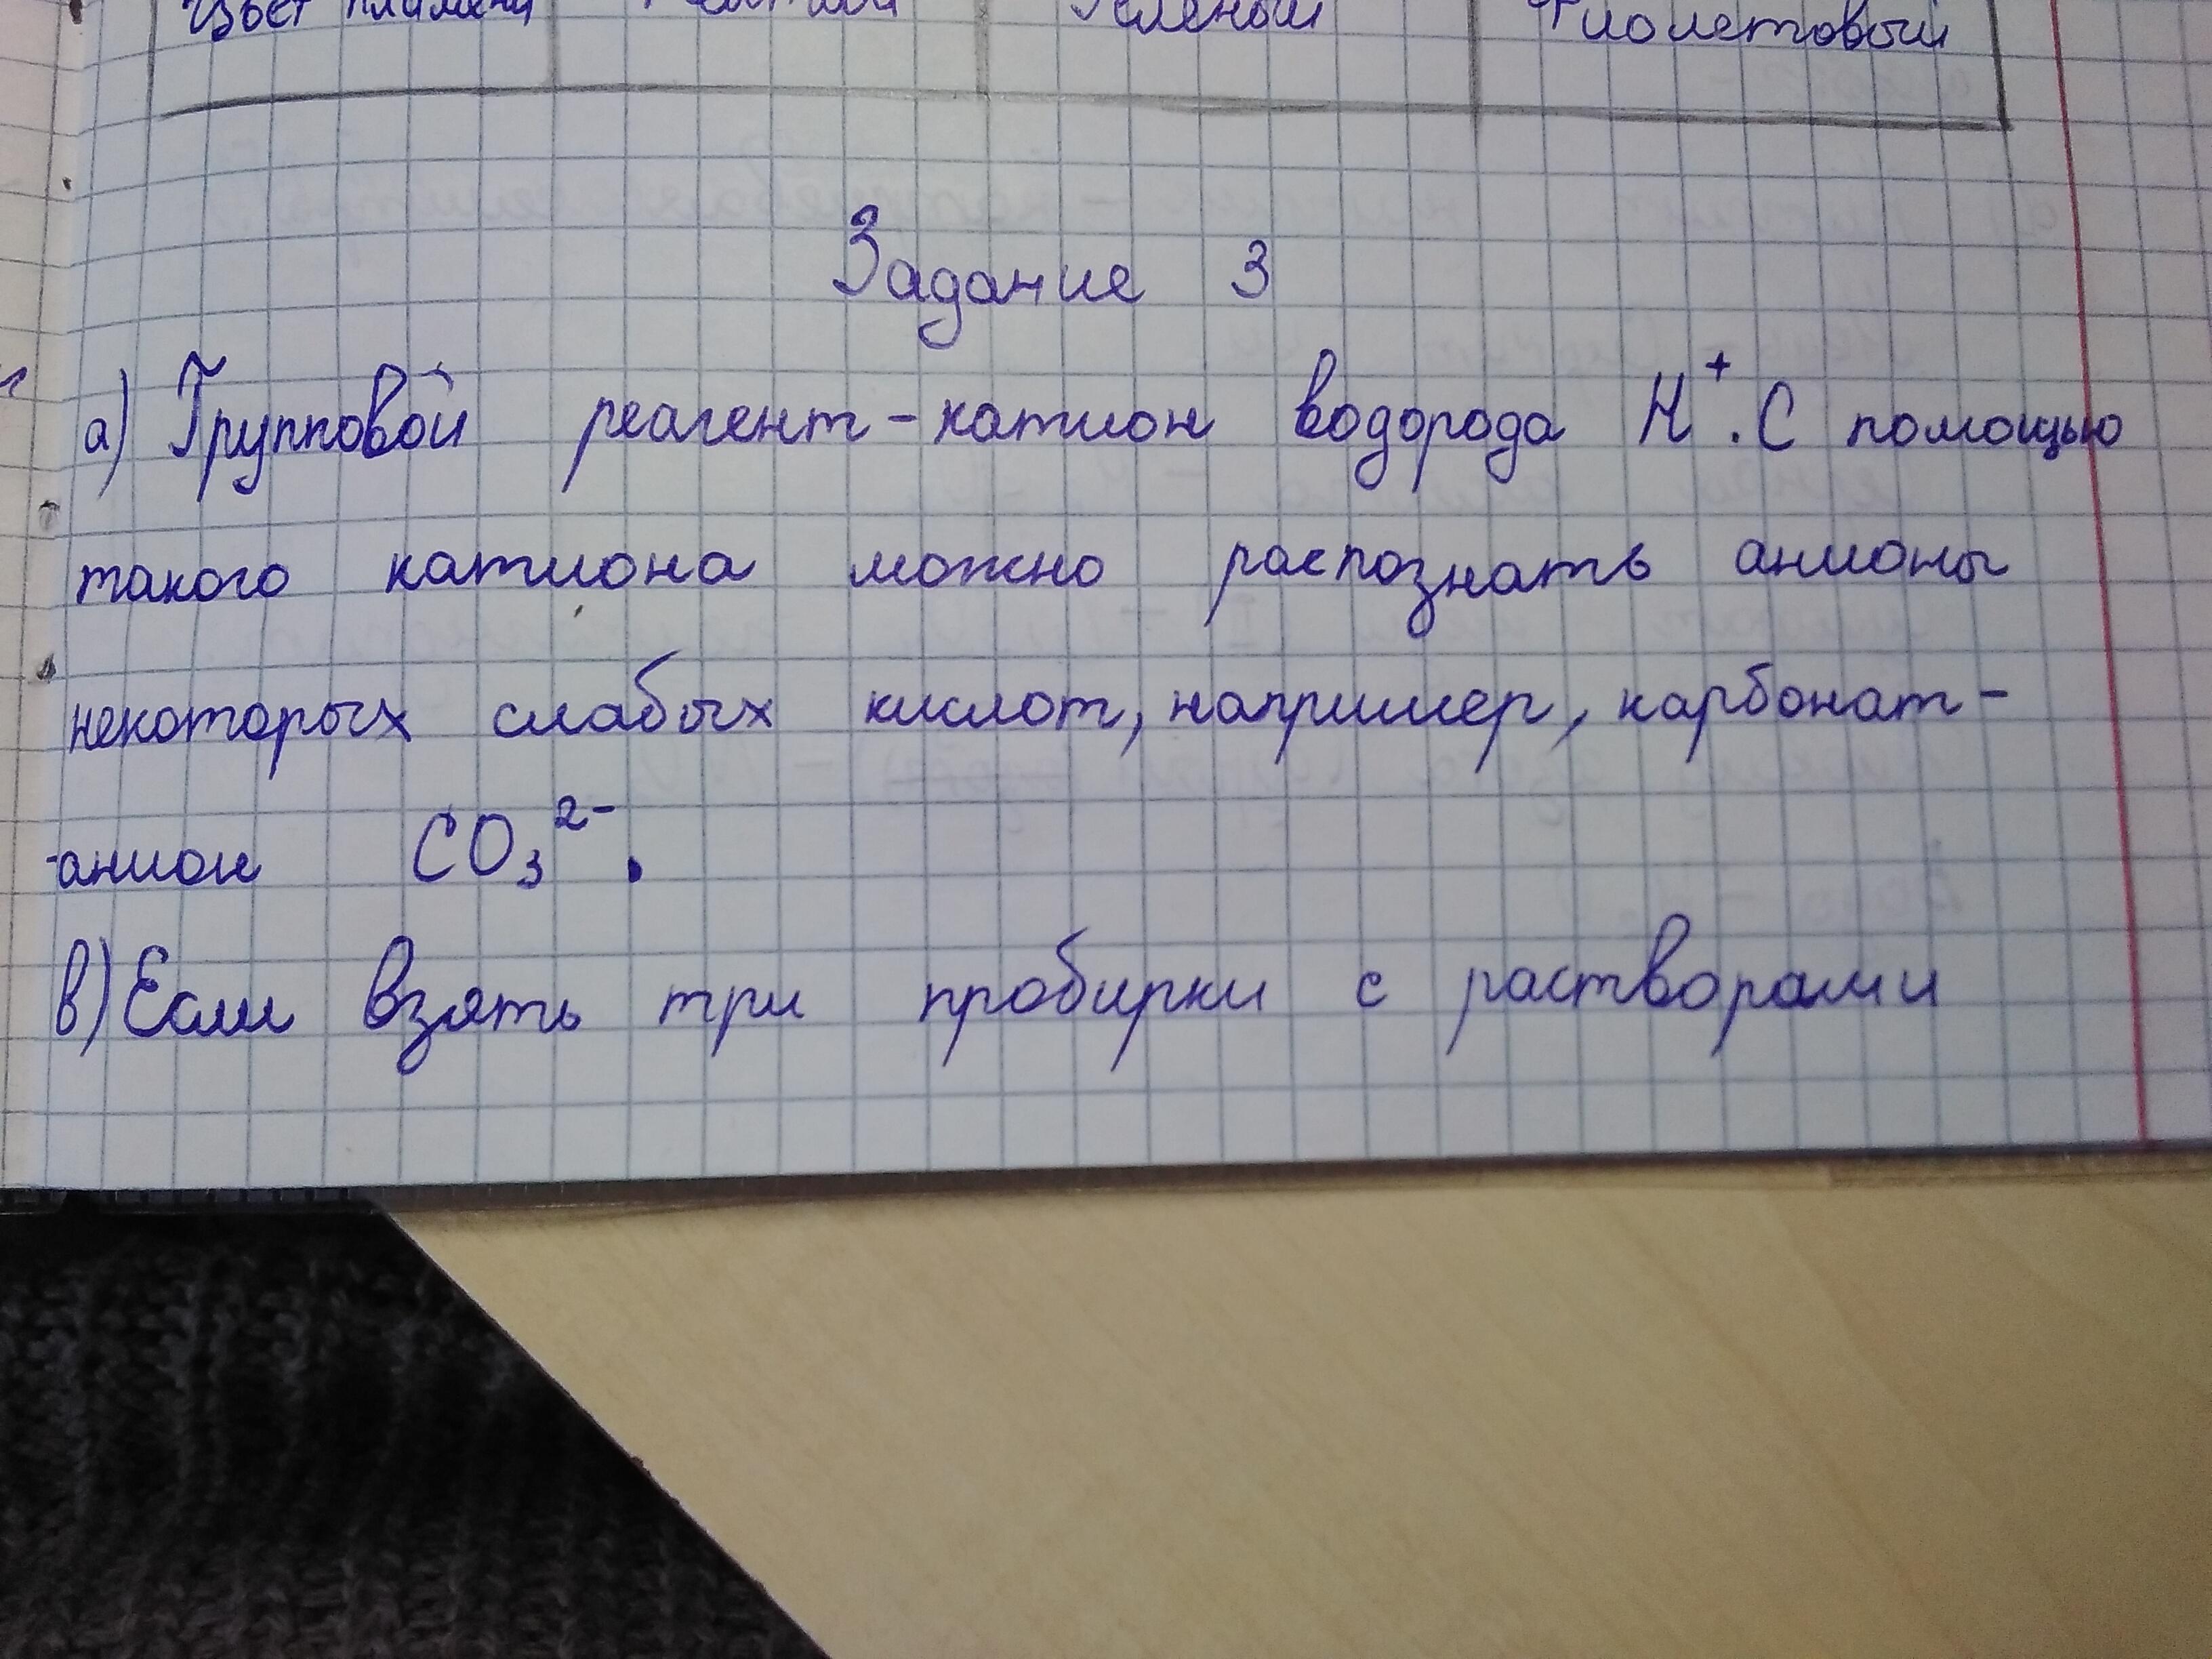 Цвет пламени Зеленый Фиолетовый
Задание 3
а) Групповой реагент-катион водорода H⁺. С помощью
такого катиона можно распознать анионы
некоторых слабых кислот, например, карбонат-
-анион CO₃²⁻.
в) Если взять три пробирки с растворами